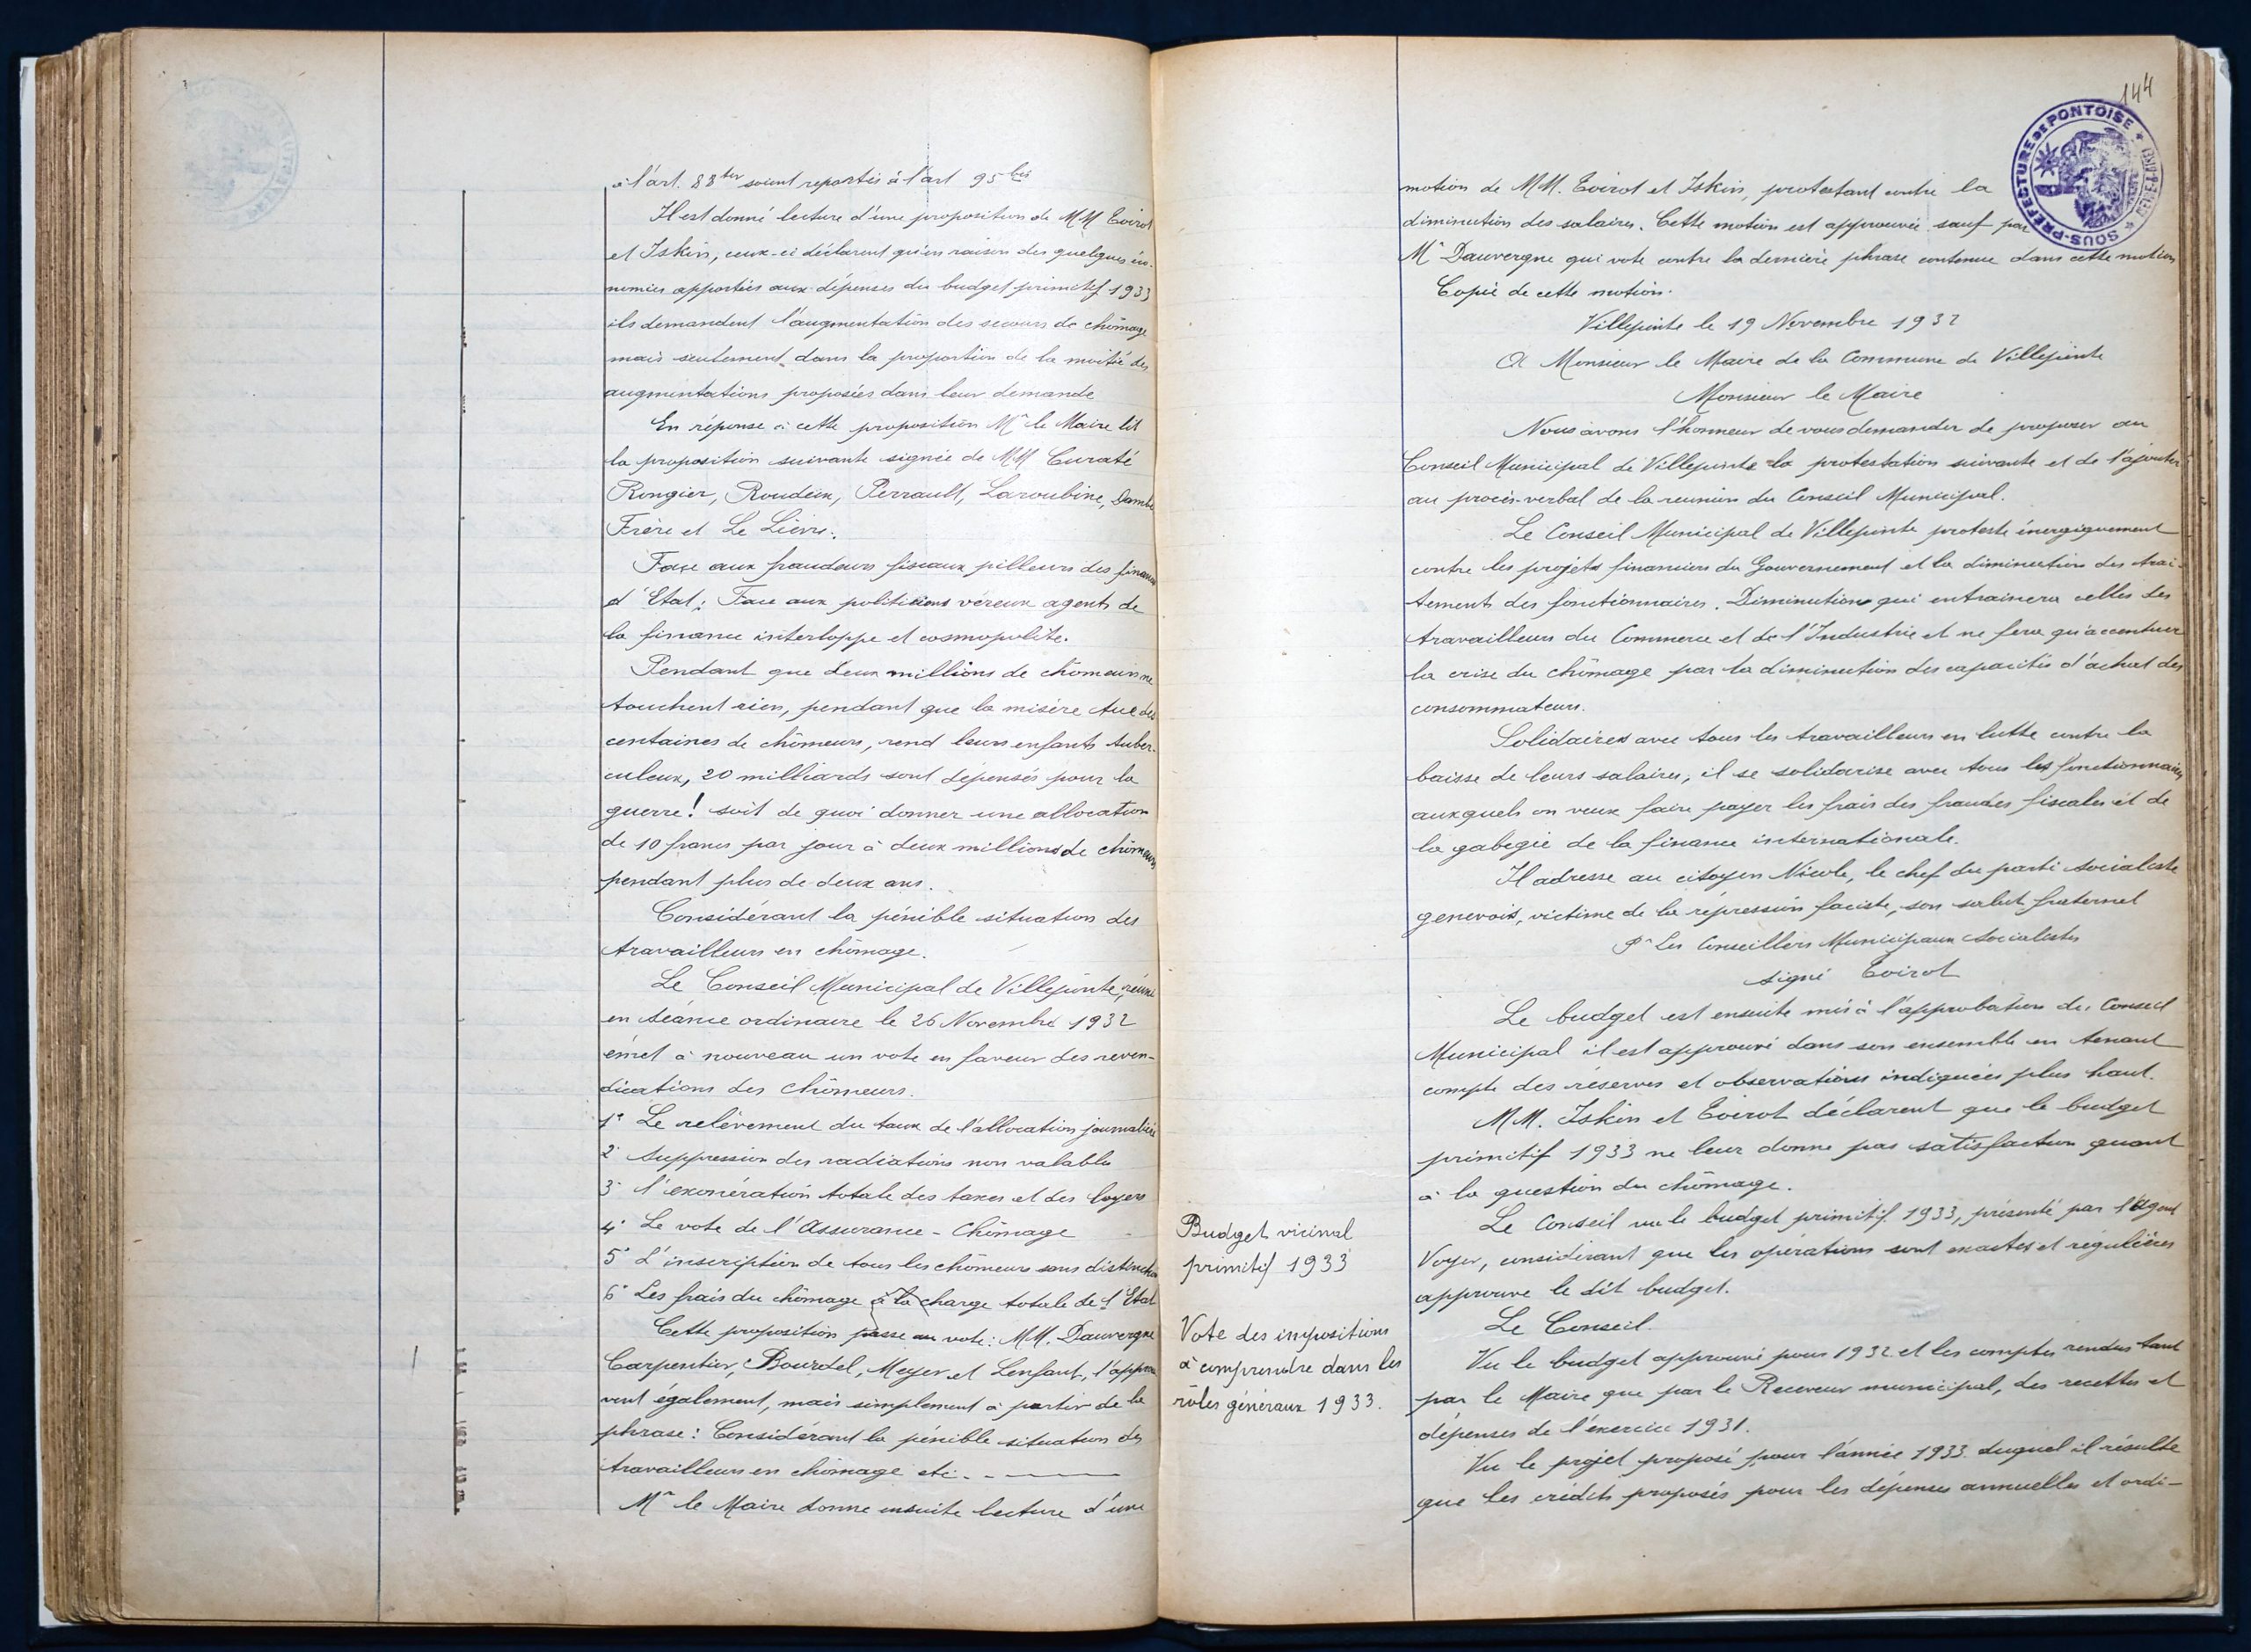 à l'art. 88 ter soient reportés à l'art 95 bis
Il est donné lecture d'une proposition de MM Evirot
et Iskin, ceux-ci déclarent qu'en raison des quelques éco-
nomies apportées aux dépenses du budget primitif 1933
ils demandent l'augmentation des secours de chômage
mais seulement dans la proportion de la moitié des
augmentations proposées dans leur demande
En réponse à cette proposition Mr le Maire lit
la proposition suivante signée de MM Curaté
Rongier, Roudeix, Perrault, Laroubine, Dambr
Frère et Le Lièvre.
Face aux fraudeurs fiscaux pilleurs des finances
d'Etat; Face aux politiciens véreux agents de
la finance interloppe et cosmopolite.
Pendant que deux millions de chômeurs ne
touchent rien, pendant que la misère tue des
centaines de chômeurs, rend leurs enfants tuber-
culeux, 20 milliards sont dépensés pour la
guerre! soit de quoi donner une allocation
de 10 francs par jour à deux millions de chômeurs
pendant plus de deux ans.
Considérant la pénible situation des
travailleurs en chômage.
Le Conseil Municipal de Villepinte, réuni
en séance ordinaire le 26 Novembre 1932
émet à nouveau un vote en faveur des reven-
dications des chômeurs.
1° Le relèvement du taux de l'allocation journalière
2° Suppression des radiations non valables
3° l'exonération totale des taxes et des loyers
4° Le vote de l'Assurance-Chômage
5° L'inscription de tous les chômeurs sans distinction
6° Les frais du chômage à la charge totale de l'Etat
Cette proposition passe au vote: MM. Dauvergne
Carpentier, Bourdel, Meyer et Lenfant, l'approu
vent également, mais simplement à partir de la
phrase: Considérant la pénible situation des
travailleurs en chômage etc.
Mr le Maire donne ensuite lecture d'une
144
SOUS-PRÉFECTURE DE PONTOISE
motion de MM. Evirot et Iskin, protestant contre la
diminution des salaires. Cette motion est approuvée sauf par
Mr Dauvergne qui vote contre la dernière phrase contenue dans cette motion
Copie de cette motion.
Villepinte le 19 Novembre 1932
A Monsieur le Maire de la Commune de Villepinte
Monsieur le Maire
Nous avons l'honneur de vous demander de proposer au
Conseil Municipal de Villepinte la protestation suivante et de l'ajouter
au procès-verbal de la reunion du Conseil Municipal.
Le Conseil Municipal de Villepinte proteste énergiquement
contre les projets financiers du Gouvernement et la diminution des trai-
tements des fonctionnaires. Diminution qui entrainera celles des
travailleurs du Commerce et de l'Industrie et ne fera qu'accentuer
la crise du chômage par la diminution des capacités d'achat des
consommateurs.
Solidaires avec tous les travailleurs en lutte contre la
baisse de leurs salaires, il se solidarise avec tous les fonctionnaires
auxquels on veux faire payer les frais des fraudes fiscales et de
la gabegie de la finance internationale.
Il adresse au citoyen Nicole, le chef du parti socialiste
genevois, victime de la répression faciste, son salut fraternel
Pr Les Conseillers Municipaux Socialistes
signé Evirot
Le budget est ensuite mis à l'approbation du Conseil
Municipal il est approuvé dans son ensemble en tenant
compte des réserves et observations indiquées plus haut.
MM. Iskin et Evirot déclarent que le budget
primitif 1933 ne leur donne pas satisfaction quant
à la question du chômage.
Budget vicinal
primitif 1933
Le Conseil vu le budget primitif 1933, présenté par l'Agent
Voyer, considérant que les opérations sont exactes et régulières
approuve le dit budget.
Vote des impositions
à comprendre dans les
rôles généraux 1933.
Le Conseil.
Vu le budget approuvé pour 1932 et les comptes rendus tant
par le Maire que par le Receveur municipal, des recettes et
dépenses de l'exercice 1931.
Vu le projet proposé pour l'année 1933 duquel il résulte
que les crédits proposés pour les dépenses annuelles et ordi-